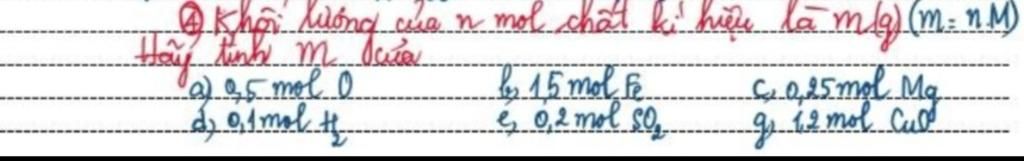 ④ Khối lượng của n mol chất kí hiệu là m (g) (m = n.M)
Hãy tính m của
a) 0,5 mol O b, 1,5 mol Fe c, 0,25 mol Mg
d, 0,1 mol H₂ e, 0,2 mol SO₂ g, 1,2 mol CuO